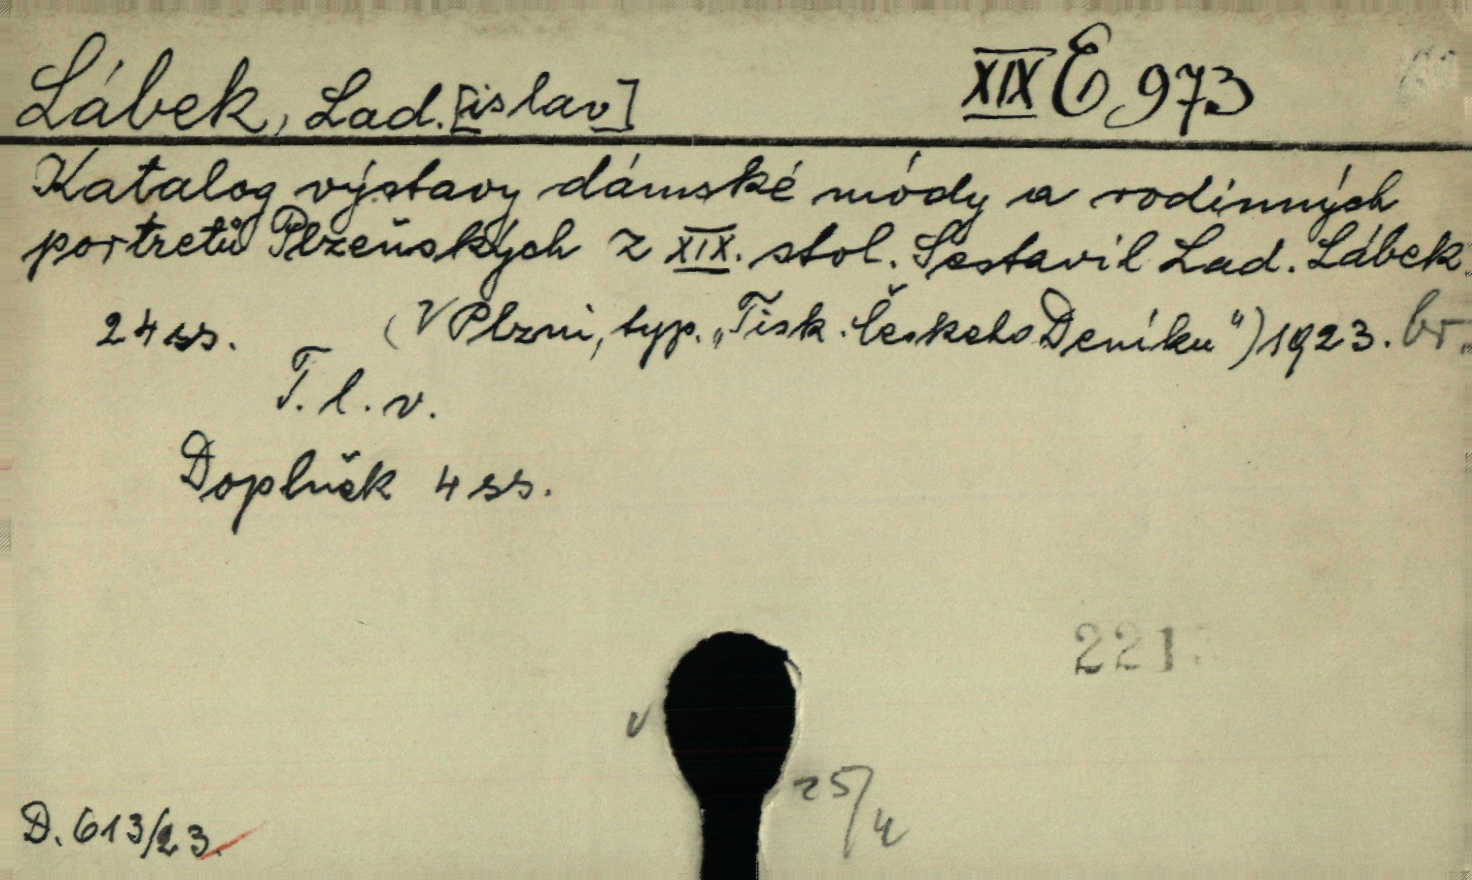 Lábek, Lad.[islav] XIX E 973
Katalog výstavy dámské módy a rodinných
portretů Plzeňských z XIX. stol. Sestavil Lad. Lábek.
24 ss. (V Plzni, typ. „Tisk. Českeho Deníku“) 1923. br.
T. l. v.
Doplněk 4 ss.
221
v
25/4
D. 613/23.